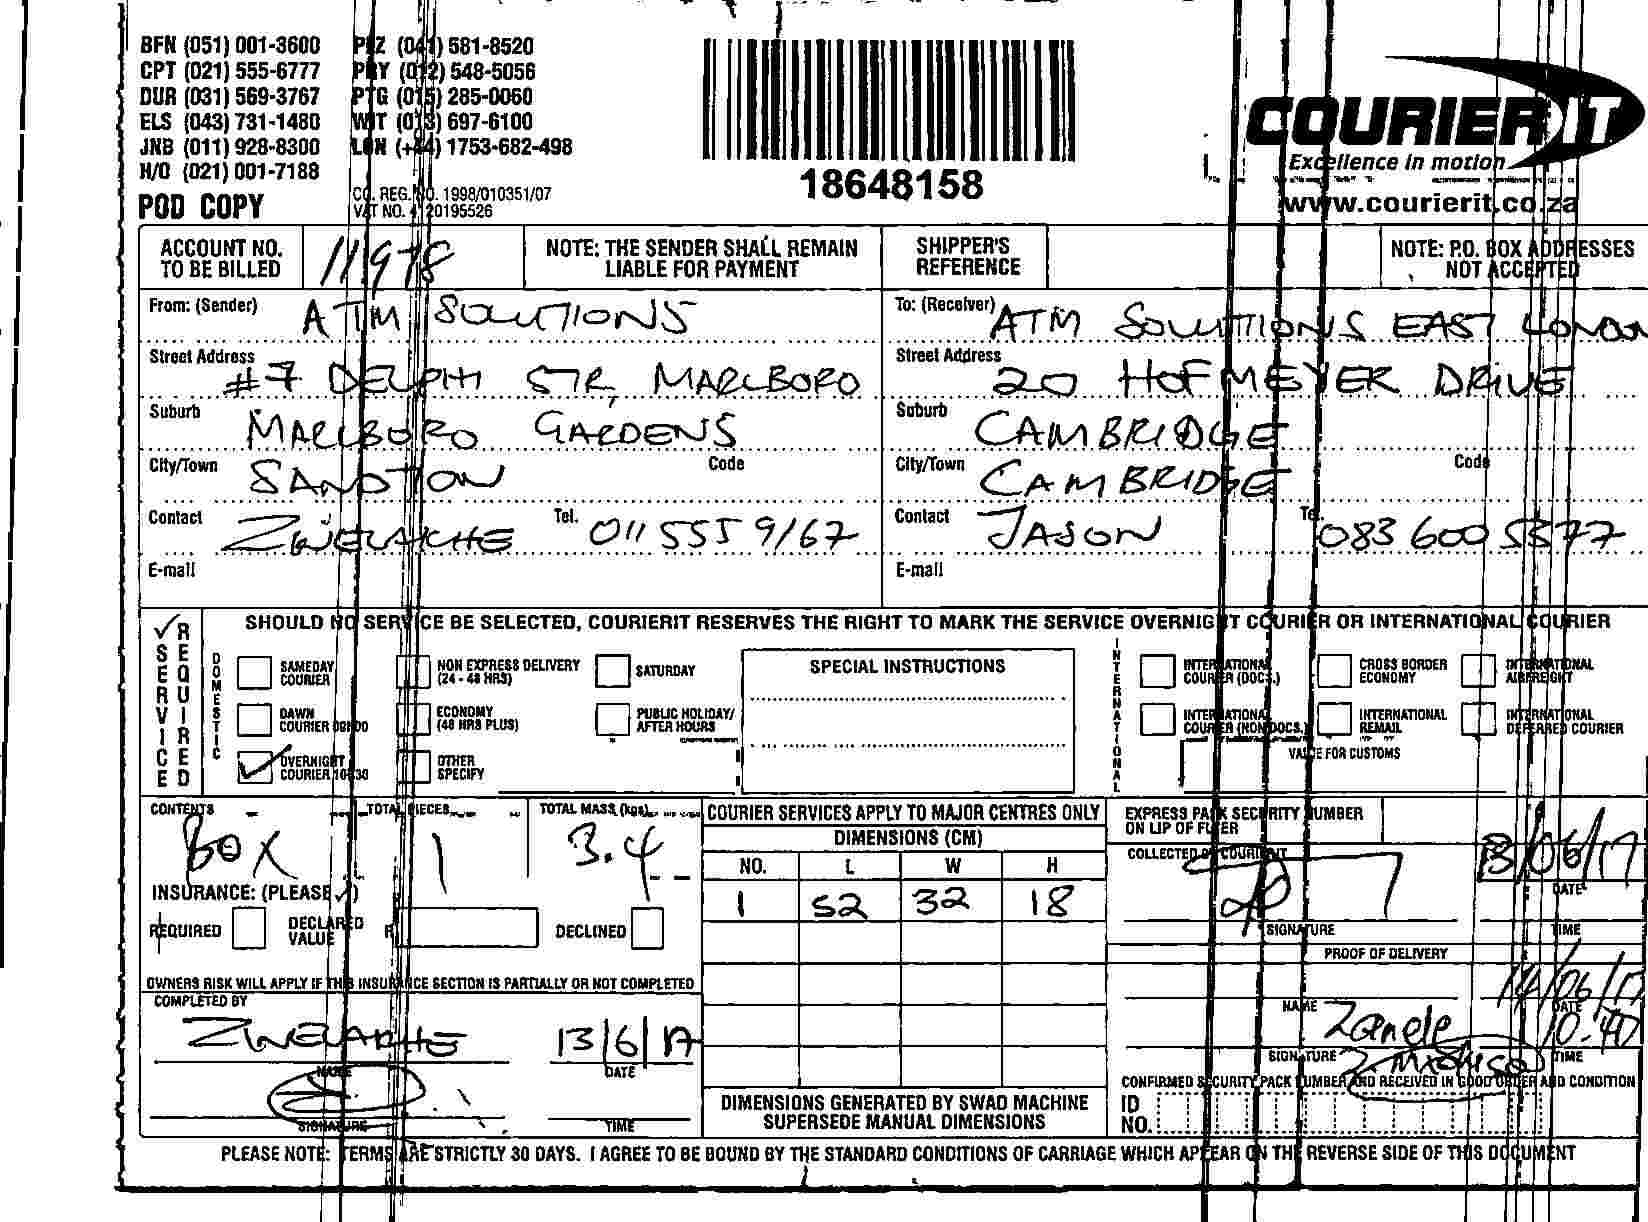 BFN (051) 001-3600 PLZ (041) 581-8520
CPT (021) 555-6777 PRY (012) 548-5056
DUR (031) 569-3767 PTG (015) 285-0060
ELS (043) 731-1480 WIT (013) 697-6100
JNB (011) 928-8300 LON (+44) 1753-682-498
H/O (021) 001-7188
POD COPY
CO. REG. NO. 1998/010351/07
VAT NO. 4 20195526
18648158
COURIER IT
Excellence in motion
www.courierit.co.za
ACCOUNT NO. TO BE BILLED 11978
NOTE: THE SENDER SHALL REMAIN LIABLE FOR PAYMENT
SHIPPER'S REFERENCE
NOTE: P.O. BOX ADDRESSES NOT ACCEPTED
From: (Sender) ATM SOLUTIONS
To: (Receiver) ATM SOLUTIONS EAST LONDON
Street Address #7 DELPHI STR, MARLBORO
Street Address 20 HOFMEYER DRIVE
Suburb MARLBORO GARDENS
Suburb CAMBRIDGE
City/Town SANDTON Code
City/Town CAMBRIDGE Code
Contact ZWELAKHE Tel. 011 555 9167
Contact JASON Tel. 083 600 5377
E-mail
E-mail
SERVICE REQUIRED
SHOULD NO SERVICE BE SELECTED, COURIERIT RESERVES THE RIGHT TO MARK THE SERVICE OVERNIGHT COURIER OR INTERNATIONAL COURIER
DOMESTIC
SAMEDAY COURIER
NON EXPRESS DELIVERY (24 - 48 HRS)
SATURDAY
DAWN COURIER 09H00
ECONOMY (48 HRS PLUS)
PUBLIC HOLIDAY/ AFTER HOURS
OVERNIGHT COURIER 10H30
OTHER SPECIFY
SPECIAL INSTRUCTIONS
INTERNATIONAL
INTERNATIONAL COURIER (DOCS.)
CROSS BORDER ECONOMY
INTERNATIONAL AIRFREIGHT
INTERNATIONAL COURIER (NON DOCS.)
INTERNATIONAL REMAIL
INTERNATIONAL DEFERRED COURIER
VALUE FOR CUSTOMS
CONTENTS BOX
TOTAL PIECES 1
TOTAL MASS (kgs) 3.4
INSURANCE: (PLEASE ✓)
REQUIRED
DECLARED VALUE R
DECLINED
OWNERS RISK WILL APPLY IF THIS INSURANCE SECTION IS PARTIALLY OR NOT COMPLETED
COMPLETED BY
ZWELAKHE 13/6/17
NAME DATE
SIGNATURE TIME
COURIER SERVICES APPLY TO MAJOR CENTRES ONLY
DIMENSIONS (CM)
NO. L W H
1 52 32 18
DIMENSIONS GENERATED BY SWAD MACHINE SUPERSEDE MANUAL DIMENSIONS
EXPRESS PACK SECURITY NUMBER ON LIP OF FLYER
COLLECTED BY COURIERIT
13/06/17
DATE
SIGNATURE TIME
PROOF OF DELIVERY
14/06/17
NAME DATE
Zanele 10:47
SIGNATURE TIME
CONFIRMED SECURITY PACK NUMBER AND RECEIVED IN GOOD ORDER AND CONDITION
ID NO.
PLEASE NOTE: TERMS ARE STRICTLY 30 DAYS. I AGREE TO BE BOUND BY THE STANDARD CONDITIONS OF CARRIAGE WHICH APPEAR ON THE REVERSE SIDE OF THIS DOCUMENT